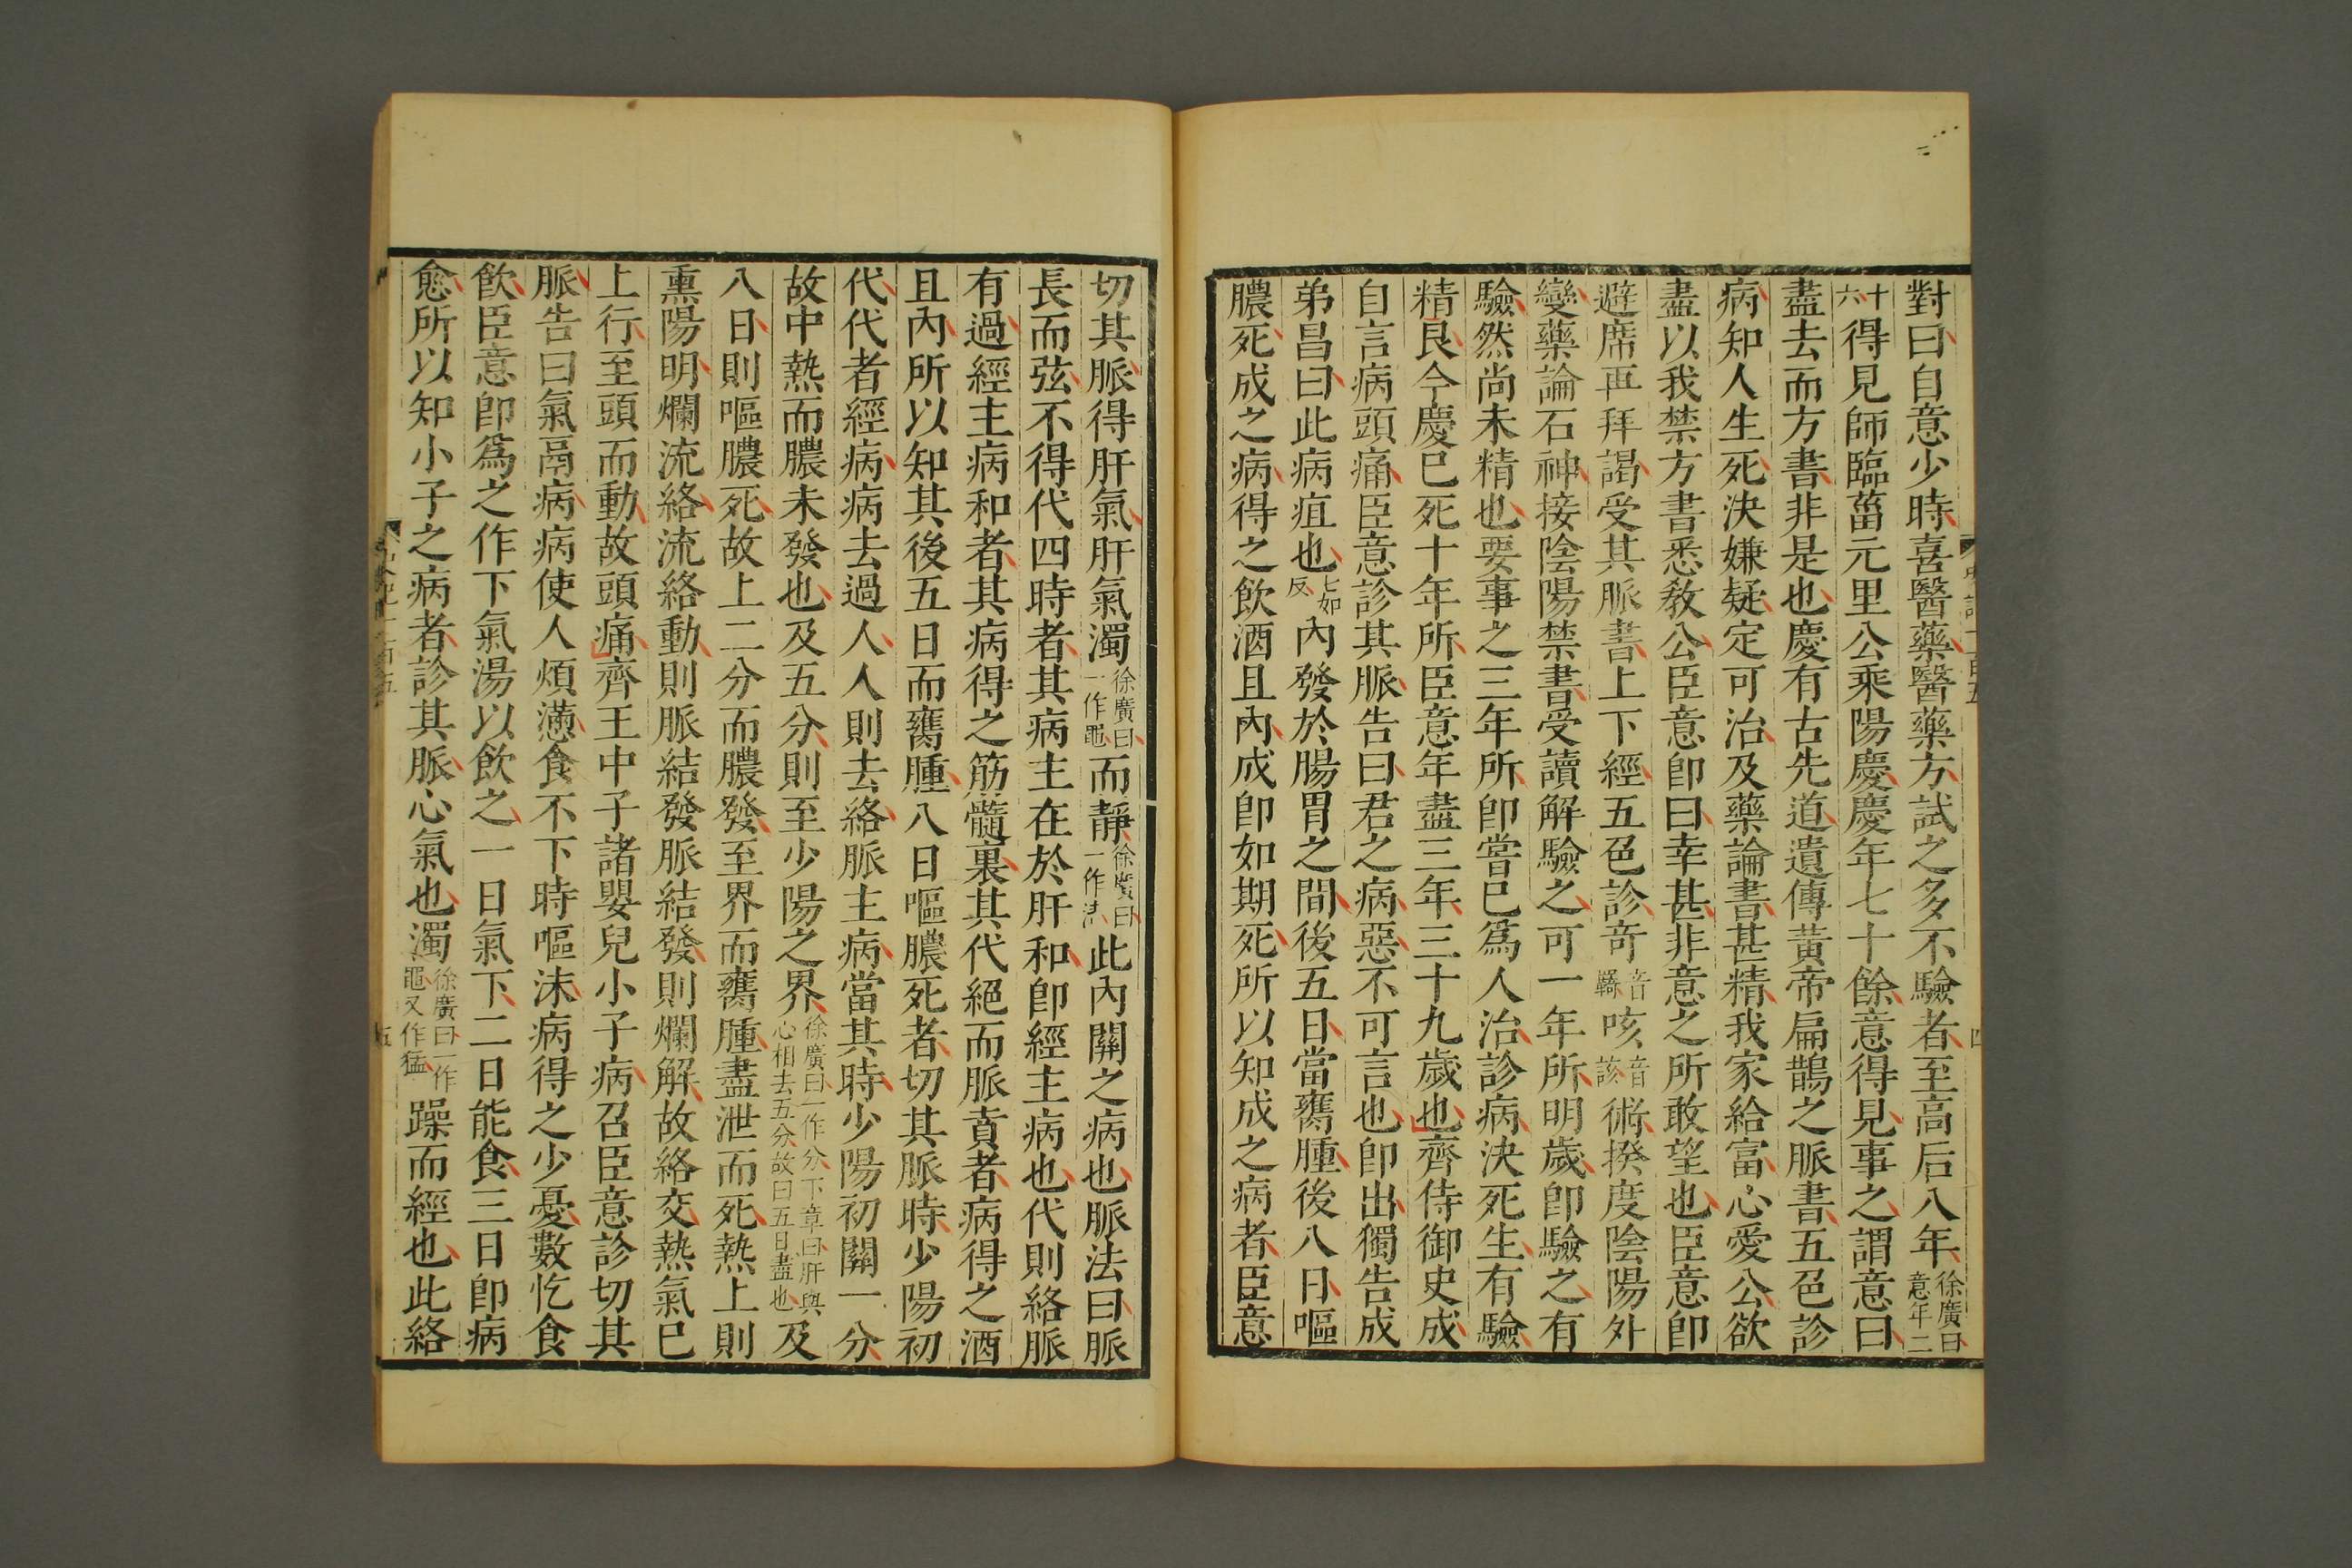 對曰自意少時喜醫藥醫藥方試之多不驗者至高后八年徐廣曰意年二
十六得見師臨菑元里公乘陽慶慶年七十餘意得見事之謂意曰
盡去而方書非是也慶有古先道遺傳黃帝扁鵲之脈書五色診
病知人生死決嫌疑定可治及藥論書甚精我家給富心愛公欲
盡以我禁方書悉教公臣意卽曰幸甚非意之所敢望也臣意卽
避席再拜謁受其脈書上下經五色診奇音羈咳音該術揆度陰陽外
變藥論石神接陰陽禁書受讀解驗之可一年所明歲卽驗之有
驗然尚未精也要事之三年所卽嘗已爲人治診病決死生有驗
精良今慶已死十年所臣意年盡三年三十九歲也齊侍御史成
自言病頭痛臣意診其脈告曰君之病惡不可言也卽出獨告成
弟昌曰此病疽也七如反內發於腸胃之間後五日當癰腫後八日嘔
膿死成之病得之飲酒且內成卽如期死所以知成之病者臣意
切其脈得肝氣肝氣濁徐廣曰一作黽而靜徐廣曰一作清此內關之病也脈法曰脈
長而弦不得代四時者其病主在於肝和卽經主病也代則絡脈
有過經主病和者其病得之筋髓裏其代絕而脈賁者病得之酒
且內所以知其後五日而癰腫八日嘔膿死者切其脈時少陽初
代代者經病病去過人人則去絡脈主病當其時少陽初關一分
故中熱而膿未發也及五分則至少陽之界徐廣曰一作分下章曰肝與心相去五分故曰五日盡也及
八日則嘔膿死故上二分而膿發至界而癰腫盡泄而死熱上則
熏陽明爛流絡流絡動則脈結發脈結發則爛解故絡交熱氣已
上行至頭而動故頭痛齊王中子諸嬰兒小子病召臣意診切其
脈告曰氣鬲病病使人煩懣食不下時嘔沫病得之少憂數忔食
飲臣意卽爲之作下氣湯以飲之一日氣下二日能食三日卽病
愈所以知小子之病者診其脈心氣也濁徐廣曰一作黽又作猛躁而經也此絡